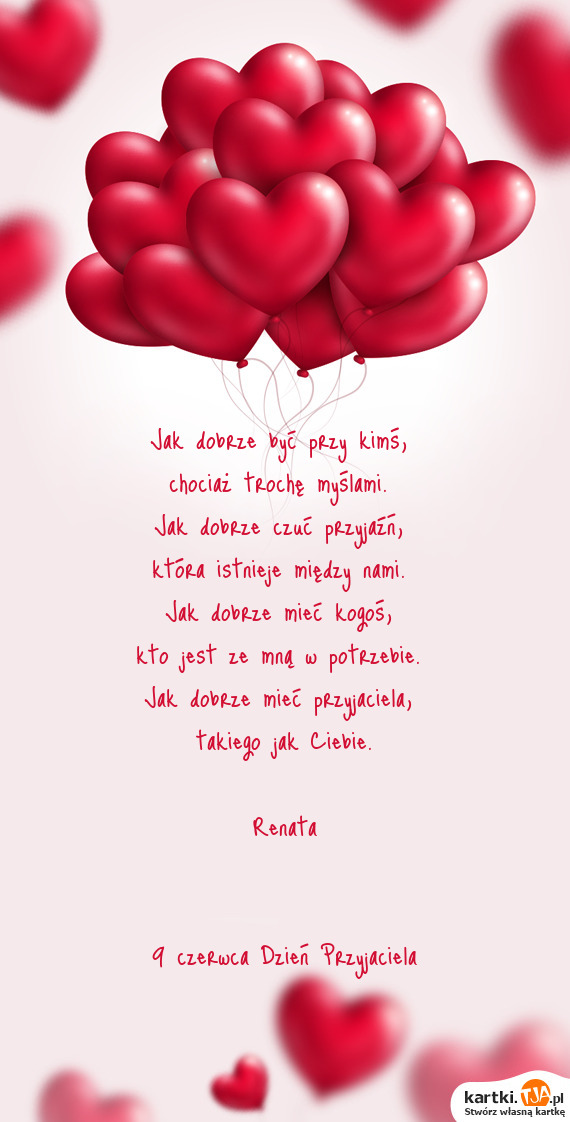 Jak dobrze być przy kimś,
chociaż trochę myślami.
Jak dobrze czuć przyjaźń,
która istnieje między nami.
Jak dobrze mieć kogoś,
kto jest ze mną w potrzebie.
Jak dobrze mieć przyjaciela,
takiego jak Ciebie.
Renata
9 czerwca Dzień Przyjaciela
kartki.TJA.pl
Stwórz własną kartkę